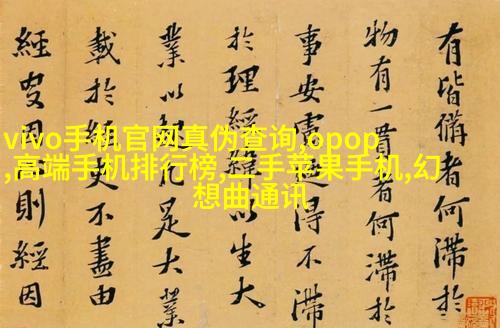 vivo手机官网真伪查询,opop
,高端手机排行榜,二手苹果手机,幻
想曲通讯
有皆備者何滯於
物有一貫者何滯於
事安得不滯
於理經以生大
業以足大業
載於不盡由
經則經因